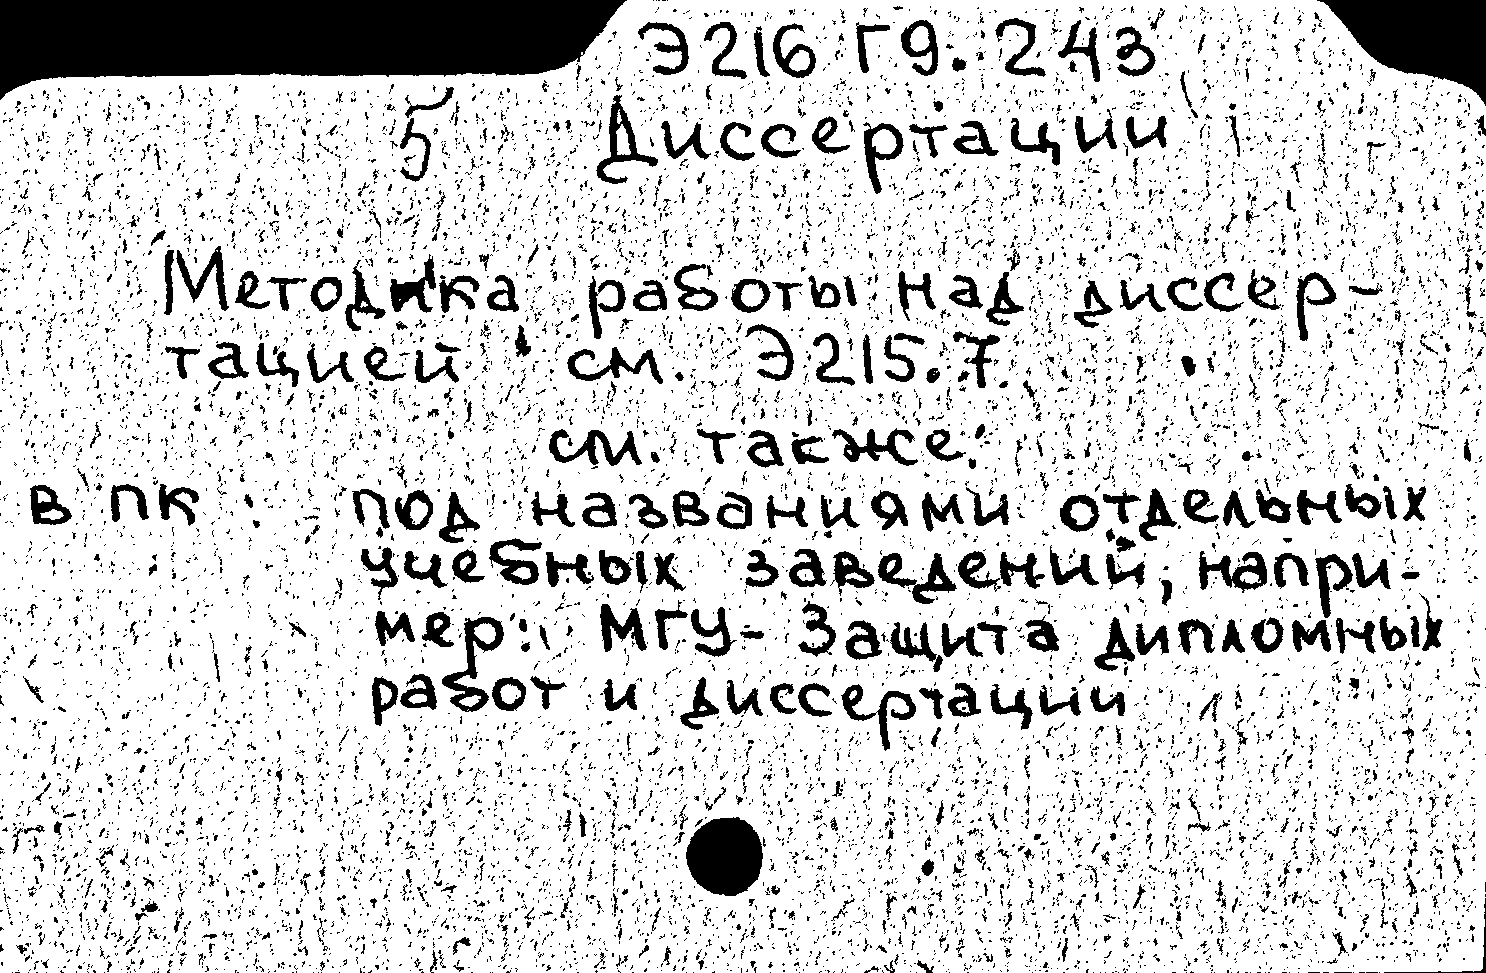 Э216 Г9. 243
5 Диссертации
Методика работы над диссер-
тацией см. Э215.7.
см. также:
в ПК: под названиями отдельных
учебных заведений, напри-
мер: МГУ- Защита дипломных
работ и диссертации